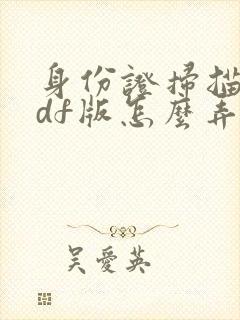 身份證掃描
df版怎麼弄
吳愛英